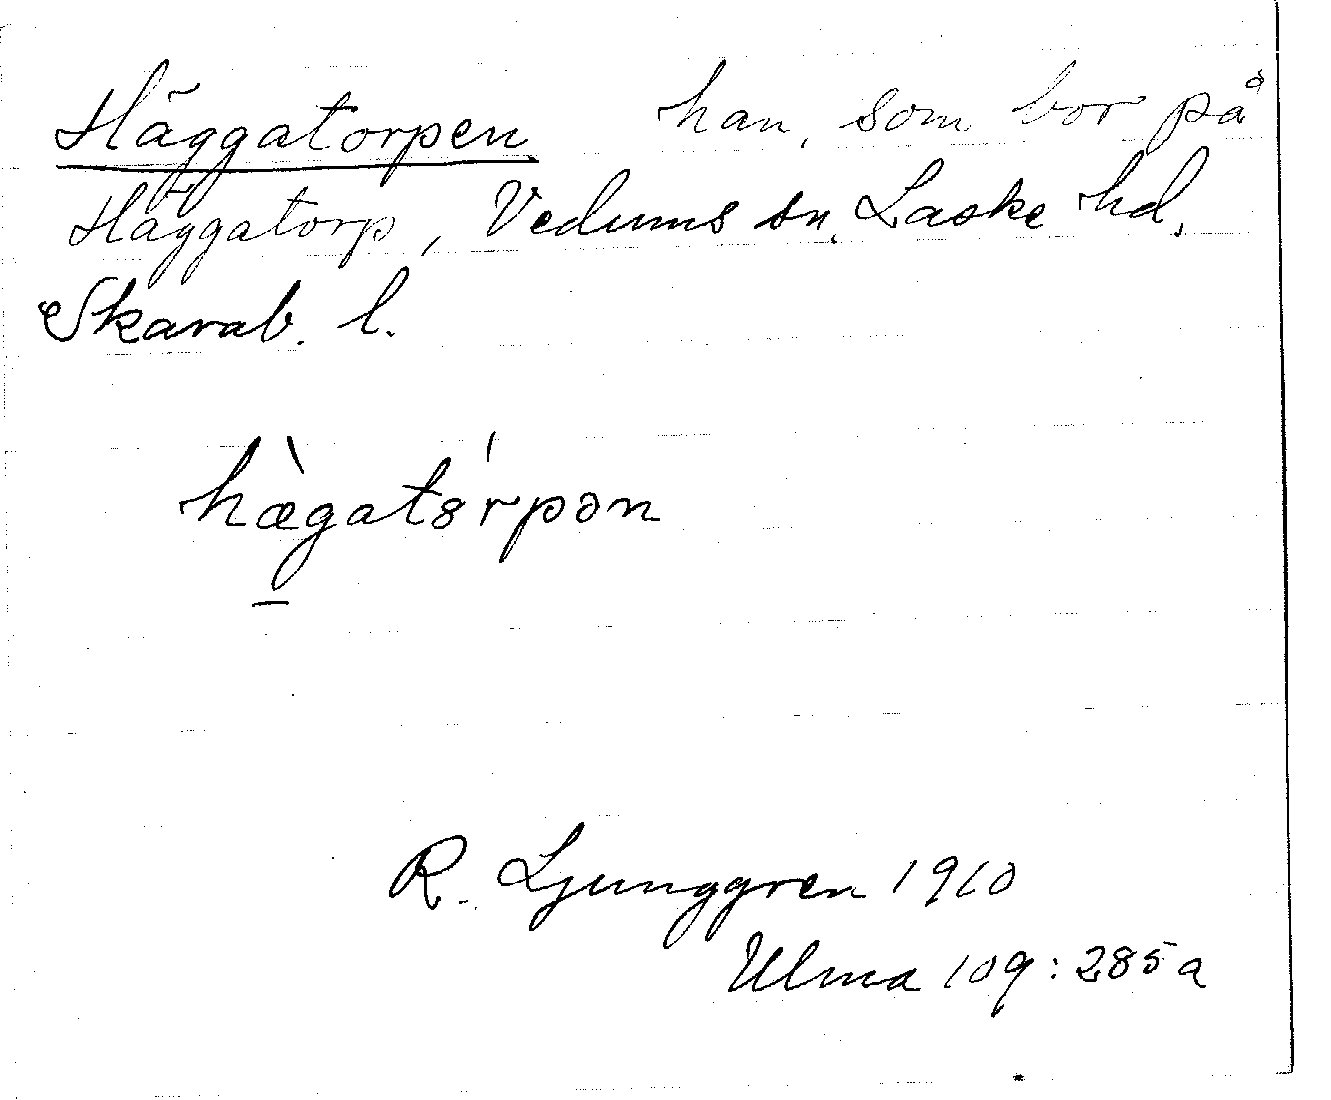 Häggatorpen han, som bor på
Häggatorp, Vedums sn. Laske hd.
Skarab. l.
hæ̀gatꝏ́rpən
R. Ljunggren 1910
Ulma 109:285a